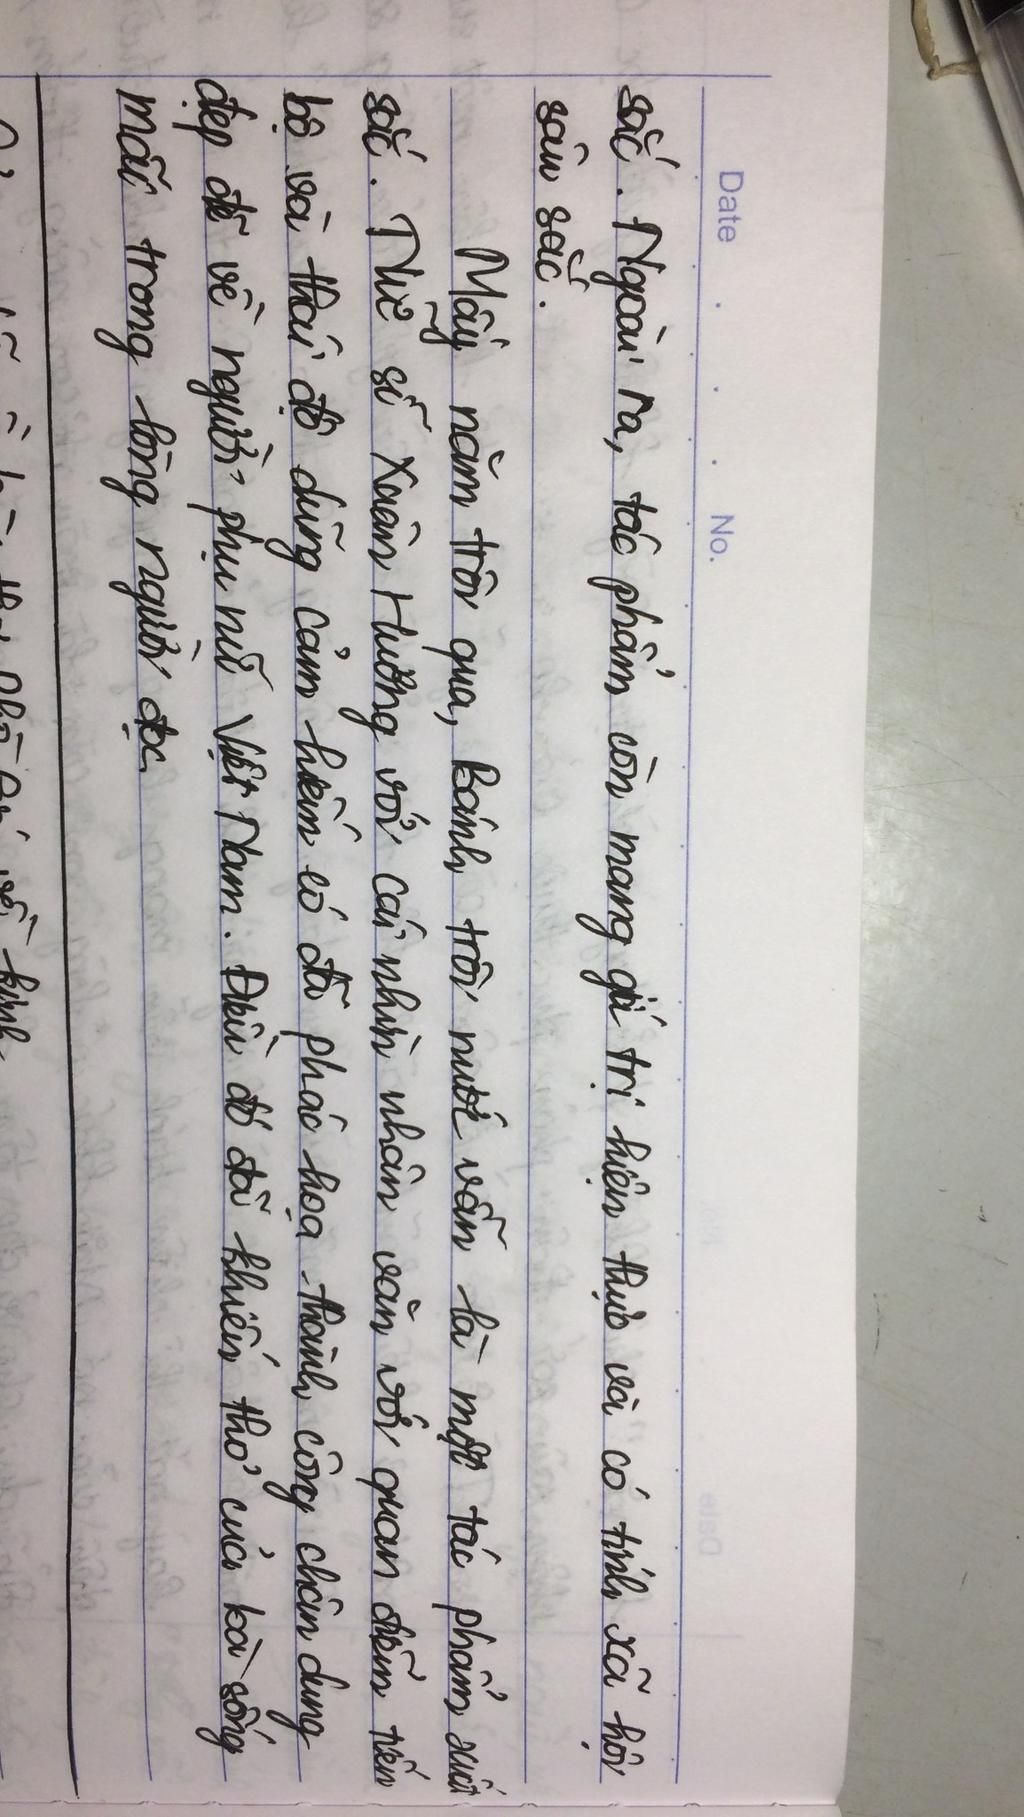 Date No.
sắc. Ngoài ra, tác phẩm còn mang giá trị hiện thực và có tính xã hội
sâu sắc.
Mấy năm trôi qua, Bánh trôi nước vẫn là một tác phẩm xuất
sắc. Thi sĩ Xuân Hương với cái nhìn nhân văn với quan điểm tiến
bộ và thái độ dũng cảm hiếm có đã phác hoạ thành công chân dung
đẹp đẽ về người phụ nữ Việt Nam. Điều đó đã khiến thơ của bà sống
mãi trong lòng người đọc.